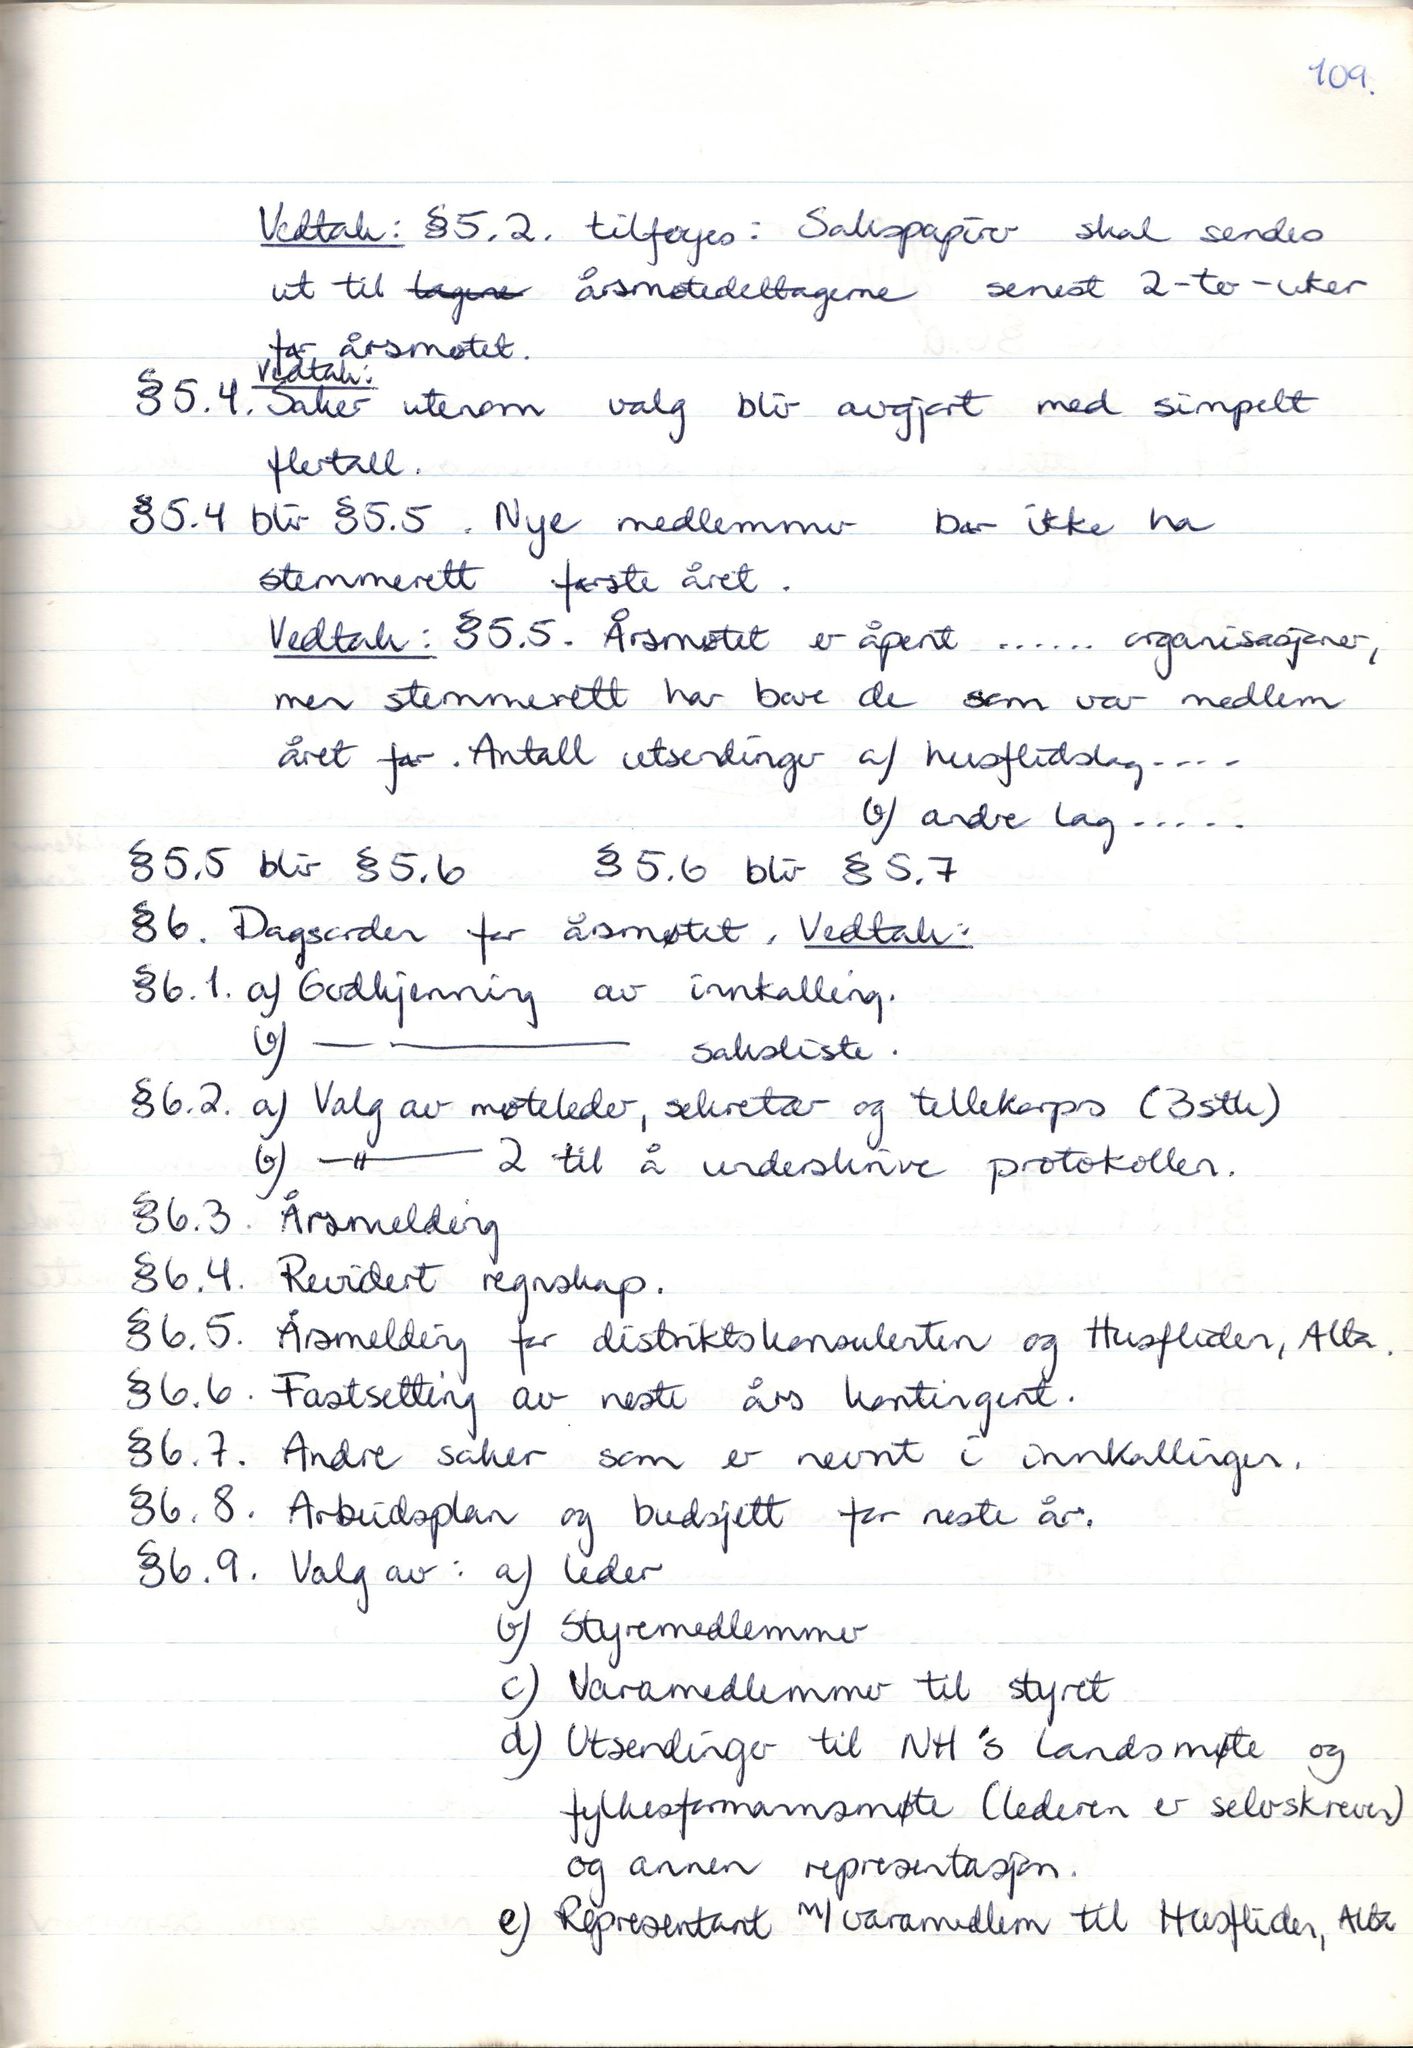 109.
Vedtak: §5.2. tilføyes: Sakspapirer skal sendes
ut til lagene årsmøtedeltagerne senest 2-to-uker
før årsmøtet.
Vedtak:
§5.4. Saker utenom valg blir avgjort med simpelt
flertall.
§5.4 blir §5.5. Nye medlemmer bør ikke ha
stemmerett første året.
Vedtak: §5.5. Årsmøtet er åpent ...... organisasjoner,
men stemmerett har bare de som var medlem
året før. Antall utsendinger a) husflidslag....
b) andre lag.....
§5.5 blir §5.6 §5.6 blir §5.7
§6. Dagsorden for årsmøtet, Vedtak:
§6.1. a) Godkjenning av innkalling.
b) — —— saksliste.
§6.2. a) Valg av møteleder, sekretær og tellekorps (3stk)
b) —"— 2 til å underskrive protokollen.
§6.3. Årsmelding
§6.4. Revidert regnskap.
§6.5. Årsmelding for distriktskonsulenten og Husfliden, Alta.
§6.6. Fastsetting av neste års kontingent.
§6.7. Andre saker som er nevnt i innkallingen.
§6.8. Arbeidsplan og budsjett for neste år.
§6.9. Valg av: a) leder
b) Styremedlemmer
c) Varamedlemmer til styret
d) Utsendinger til NH's landsmøte og
fylkesformannsmøte (lederen er selvskreven)
og annen representasjon.
e) Representant m/varamedlem til Husfliden, Alta